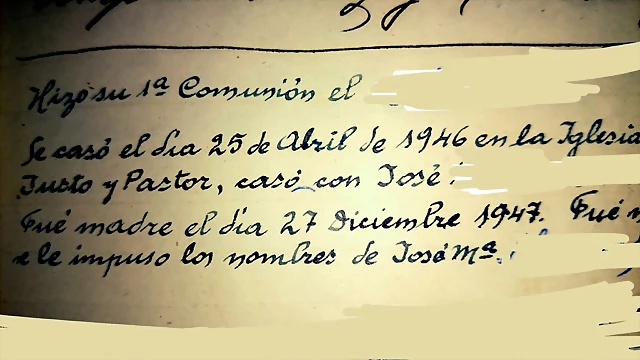 Hizo su 1ª Comunión el
Se casó el día 25 de Abril de 1946 en la Iglesia
Justo y Pastor, casó con José
Fué madre el día 27 Diciembre 1947. Fué
e le impuso los nombres de José Mª.